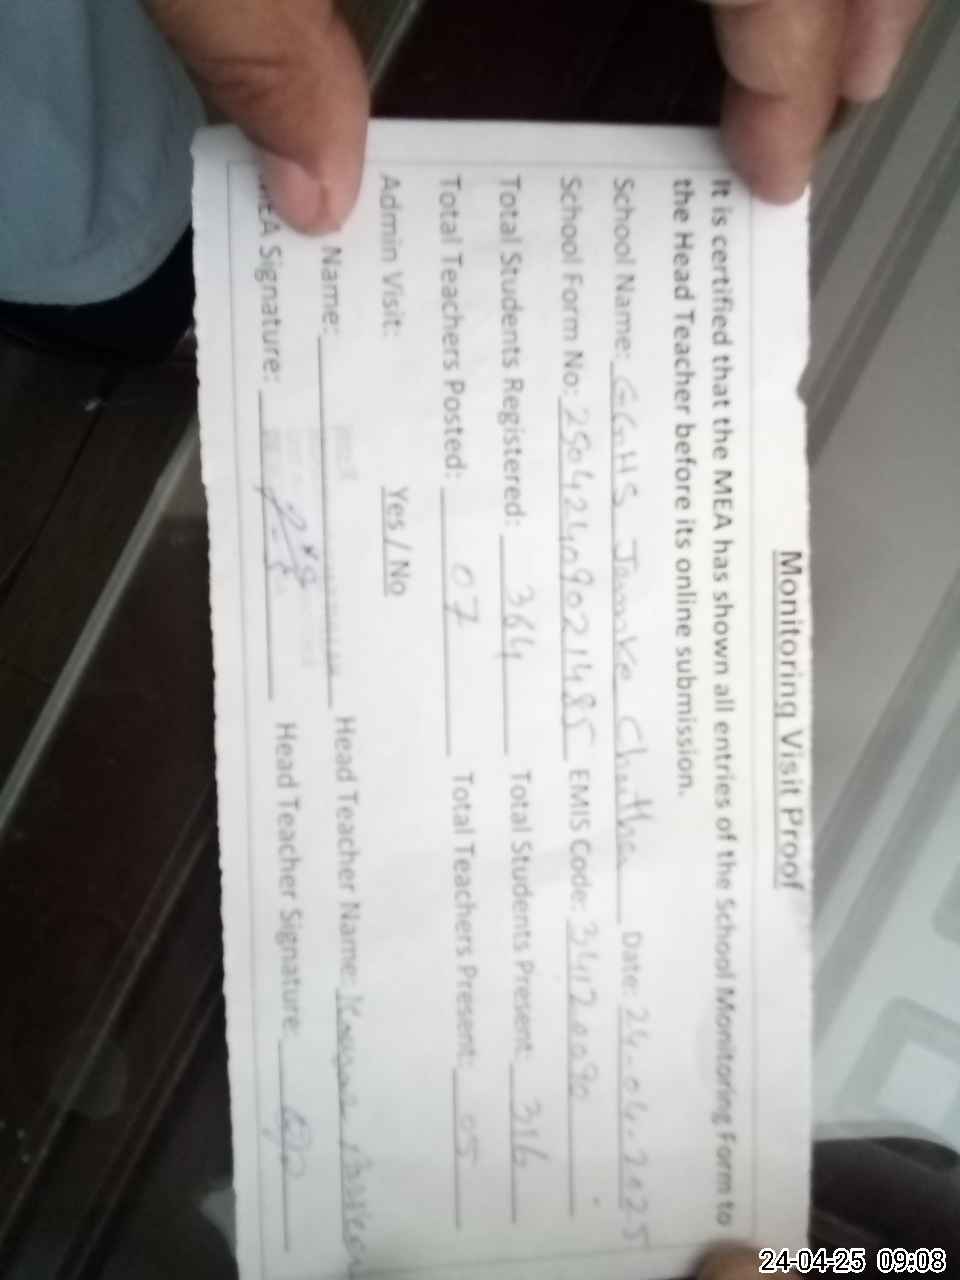 Monitoring Visit Proof
It is certified that the MEA has shown all entries of the School Monitoring Form to
the Head Teacher before its online submission.
School Name: GGHS Date: 24-04-2025
School Form No: EMIS Code:
Total Students Registered: 364 Total Students Present: 316
Total Teachers Posted: 07 Total Teachers Present: 05
Admin Visit: Yes / No
Name: Head Teacher Name:
Signature: Head Teacher Signature:
24-04-25 09:08